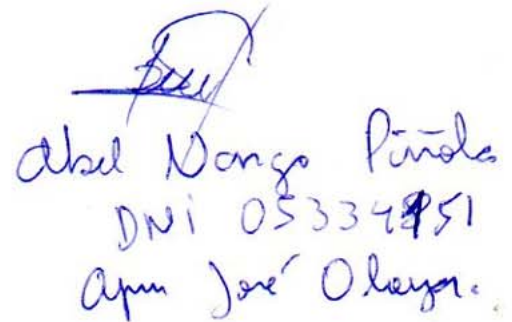 Abel Nango Piñola
DNI 05334951
apu José Olaya.